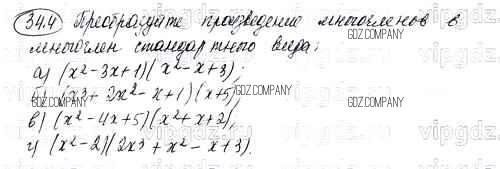 34.4 Преобразуйте произведение многочленов в
многочлен стандартного вида:
а) (x²-3x+1)(x²-x+3);
б) (x³+2x²-x+1)(x+5);
в) (x²-4x+5)(x²+x+2);
г) (x²-2)(2x³+x²-x+3).
GDZ.COMPANY
GDZ.COMPANY
GDZ.COMPANY
GDZ.COMPANY
vipgdz
vipgdz
vipgdz